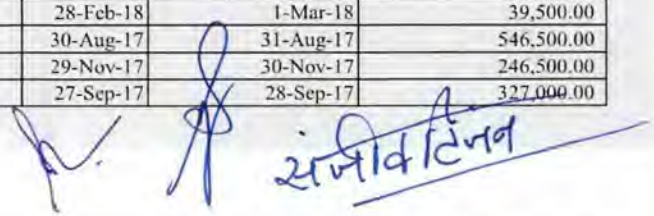 28-Feb-18 1-Mar-18 39,500.00
30-Aug-17 31-Aug-17 546,500.00
29-Nov-17 30-Nov-17 246,500.00
27-Sep-17 28-Sep-17 327,000.00
संजीव